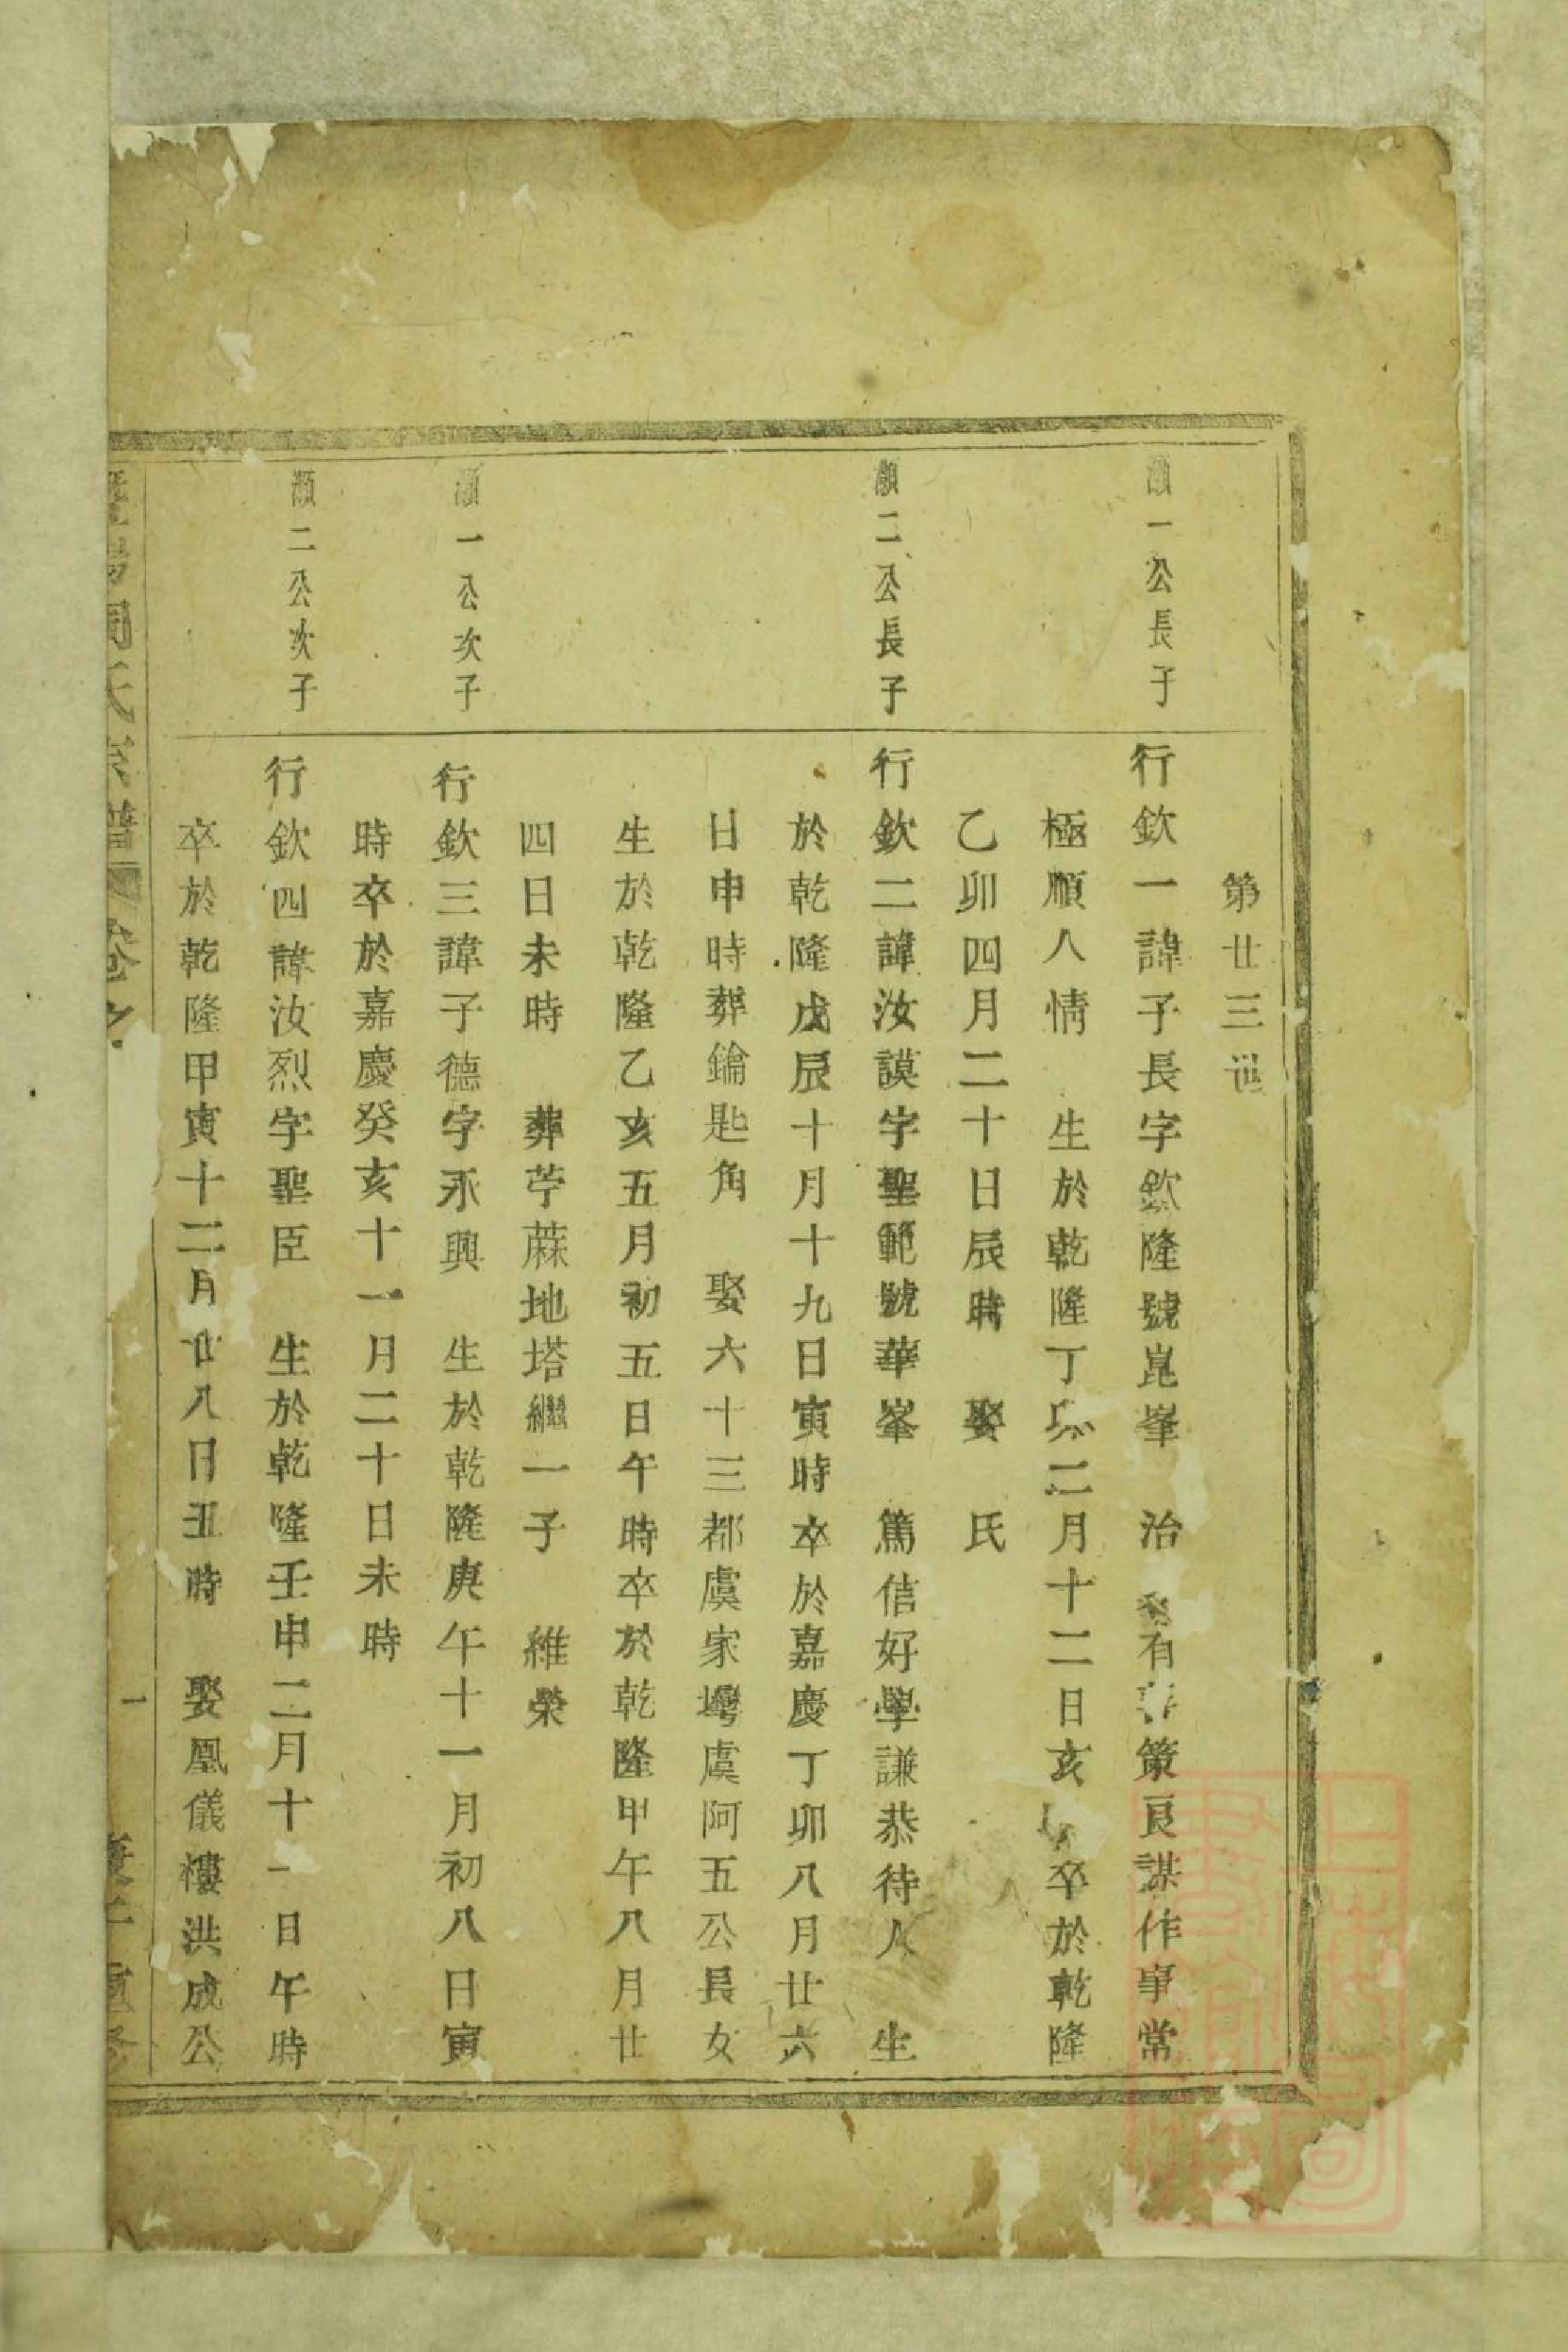 第廿三世
灝一公長子
行欽一諱子長字欽隆號崑峯 治 有 策良謀作事常
極順人情 生於乾隆丁 二月十二日亥 卒於乾隆
乙卯四月二十日辰時 娶 氏
灝二公長子
行欽二諱汝謨字聖範號華峯 篤信好學謙恭待人 生
於乾隆戊辰十月十九日寅時卒於嘉慶丁卯八月廿六
日申時葬鑰匙角 娶六十三都虞家塆虞阿五公長女
生於乾隆乙亥五月初五日午時卒於乾隆甲午八月廿
四日未時 葬苧蔴地塔繼一子 維榮
灝一公次子
行欽三諱子德字永興 生於乾隆庚午十一月初八日寅
時卒於嘉慶癸亥十一月二十日未時
灝二公次子
行欽四諱汝烈字聖臣 生於乾隆壬申二月十一日午時
卒於乾隆甲寅十二月廿八日丑時 娶凰儀樓洪成公
氏宗譜 卷之
一